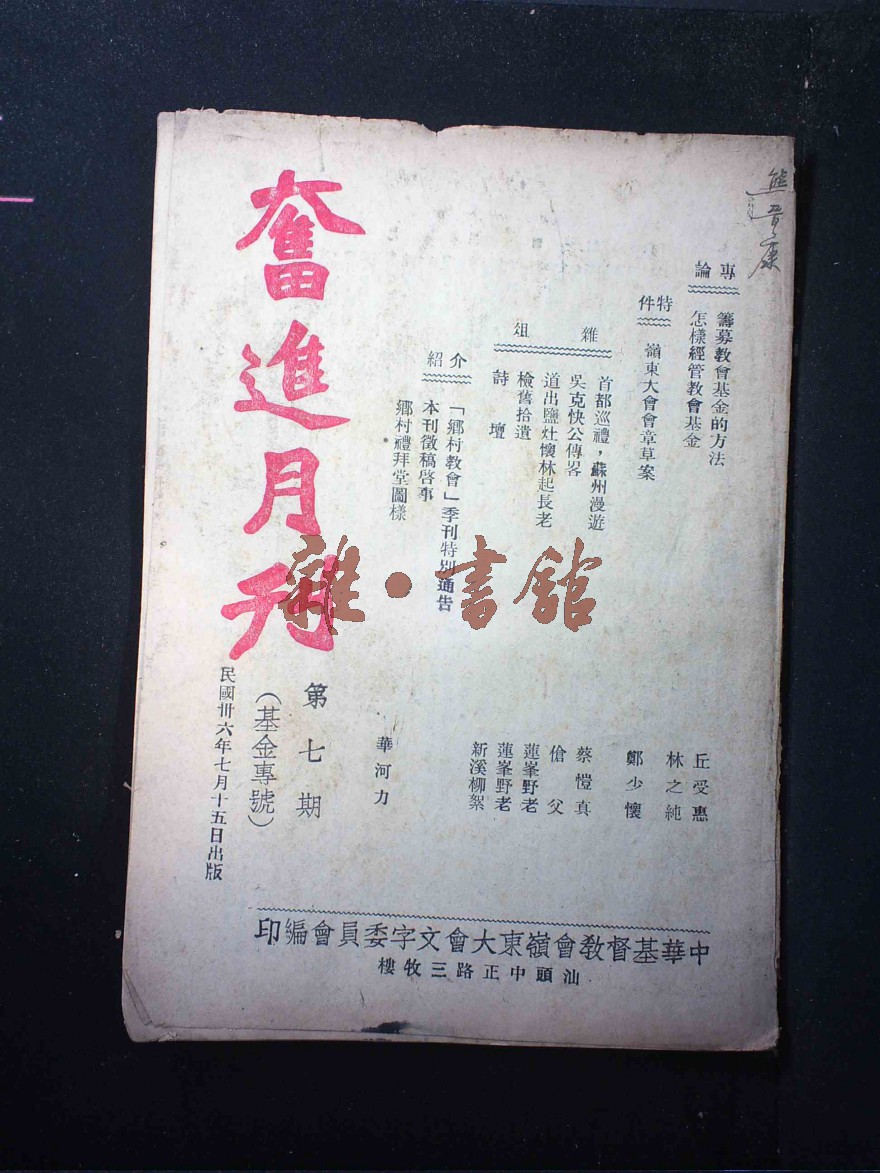 專論
籌募教會基金的方法 丘受惠
怎樣經管教會基金 林之純
特件
嶺東大會會章草案 鄭少懷
雜俎
首都巡禮，蘇州漫遊 蔡愷真
吳克快公傳畧 傖父
道出鹽灶懷林起長老 蓮峯野老
檢舊拾遺 蓮峯野老
詩壇 新溪柳絮
介紹
「鄉村教會」季刊特別通告
本刊徵稿啓事
鄉村禮拜堂圖樣 華河力
奮進月刊
第七期
（基金專號）
民國卅六年七月十五日出版
中華基督敎會嶺東大會文字委員會編印
汕頭中正路三牧樓
雜·書館